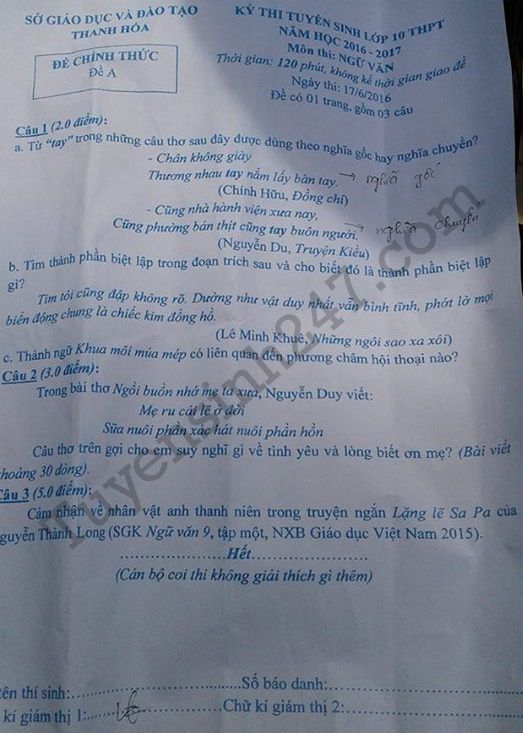 SỞ GIÁO DỤC VÀ ĐÀO TẠO
THANH HÓA
ĐỀ CHÍNH THỨC
ĐỀ A
KỲ THI TUYỂN SINH LỚP 10 THPT
NĂM HỌC 2016 - 2017
Môn thi: NGỮ VĂN
Thời gian: 120 phút, không kể thời gian giao đề
Ngày thi: 17/6/2016
Đề có 01 trang, gồm 03 câu
Câu 1 (2.0 điểm):
a. Từ "tay" trong những câu thơ sau đây được dùng theo nghĩa gốc hay nghĩa chuyển?
- Chân không giày
Thương nhau tay nắm lấy bàn tay. → nghĩa gốc
(Chính Hữu, Đồng chí)
- Cũng nhà hành viện xưa nay,
Cũng phường bán thịt cũng tay buôn người. → nghĩa chuyển
(Nguyễn Du, Truyện Kiều)
b. Tìm thành phần biệt lập trong đoạn trích sau và cho biết đó là thành phần biệt lập
gì?
Tim tôi cũng đập không rõ. Dường như vật duy nhất vẫn bình tĩnh, phớt lờ mọi
biến động chung là chiếc kim đồng hồ.
(Lê Minh Khuê, Những ngôi sao xa xôi)
c. Thành ngữ Khua môi múa mép có liên quan đến phương châm hội thoại nào?
Câu 2 (3.0 điểm):
Trong bài thơ Ngồi buồn nhớ mẹ ta xưa, Nguyễn Duy viết:
Mẹ ru cái lẽ ở đời
Sữa nuôi phần xác hát nuôi phần hồn
Câu thơ trên gợi cho em suy nghĩ gì về tình yêu và lòng biết ơn mẹ? (Bài viết
khoảng 30 dòng).
Câu 3 (5.0 điểm):
Cảm nhận về nhân vật anh thanh niên trong truyện ngắn Lặng lẽ Sa Pa của
guyễn Thành Long (SGK Ngữ văn 9, tập một, NXB Giáo dục Việt Nam 2015).
..............................Hết..............................
(Cán bộ coi thi không giải thích gì thêm)
tên thí sinh:..............................Số báo danh:..............................
kí giám thị 1:..............................Chữ kí giám thị 2:..............................
Tuyensinh247.com